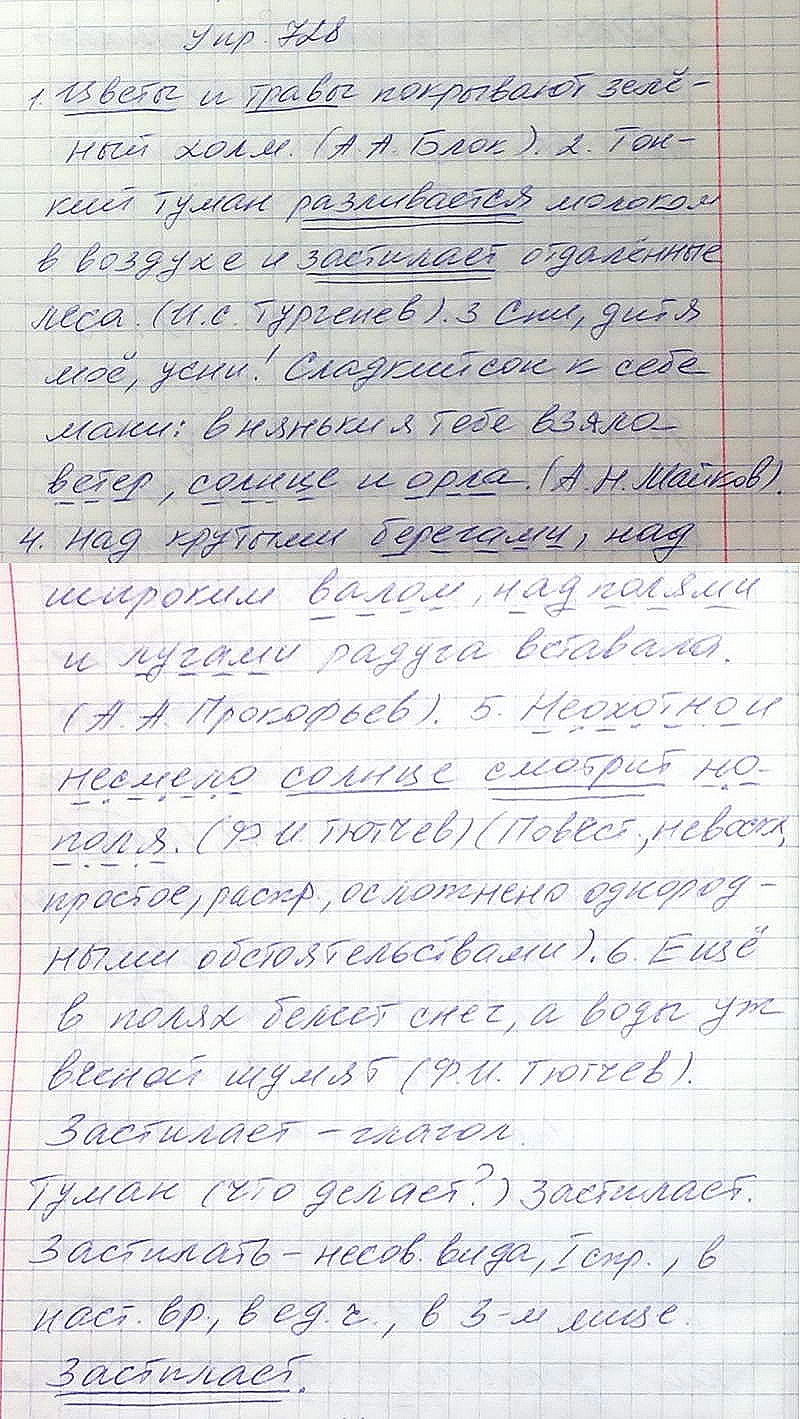 Упр. 728
1. Цветы и травы покрывают зелё-
ный холм. (А.А. Блок). 2. Тон-
кий туман разливается молоком
в воздухе и застилает отдалённые
леса. (И.С. Тургенев). 3 Спи, дитя
моё, усни! Сладкий сон к себе
мани: в няньки я тебе взяла
ветер, солнце и орла. (А.Н. Майков).
4. Над крутыми берегами, над
широким валом, над полями
и лугами радуга вставала.
(А.А Прокофьев). 5. Неохотно и
несмело солнце смотрит на
поля. (Ф.И. Тютчев) (Повест., невоскл,
простое, распр., осложнено однород-
ными обстоятельствами). 6. Ещё
в полях белеет снег, а воды уж
весной шумят (Ф.И. Тютчев).
Застилает – глагол.
Туман (что делает?) Застилает.
Застилать – несов. вида, I спр., в
наст. вр., в ед. ч., в 3-м лице.
Застилает.